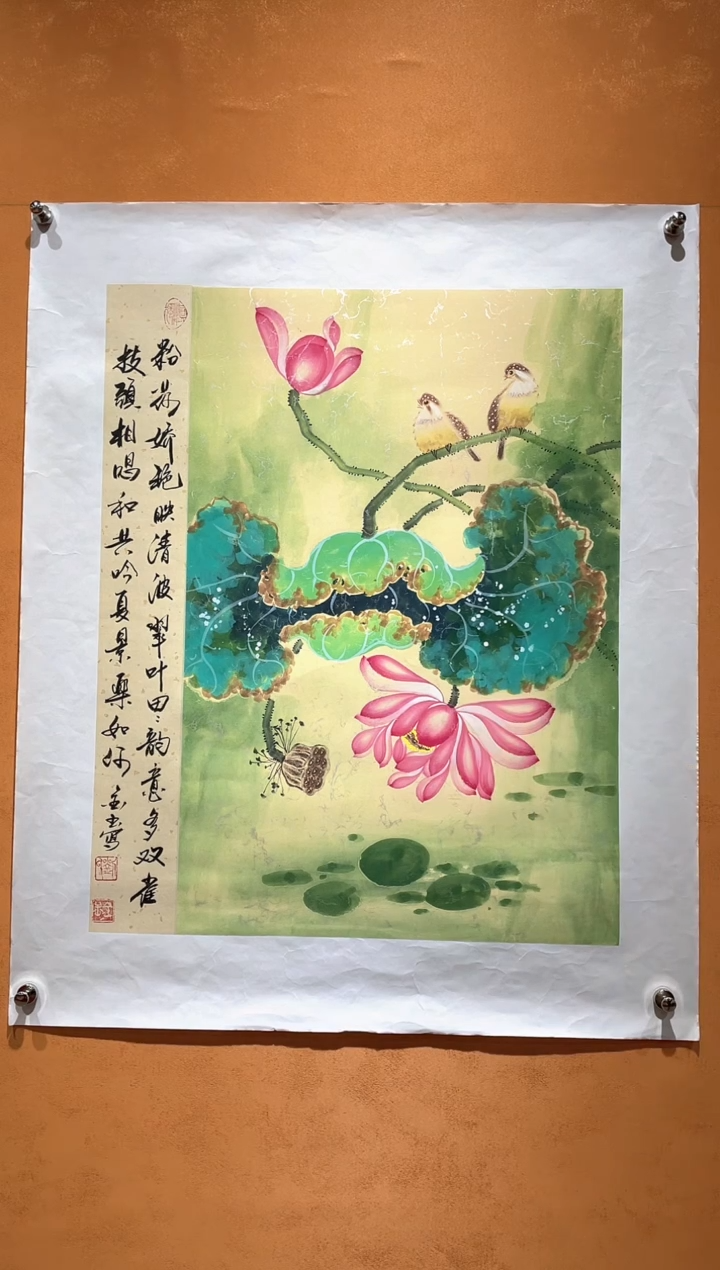 粉荷娇艳映清波翠叶田〻韵意多双雀
枝头相唱和共吟夏景乐如何